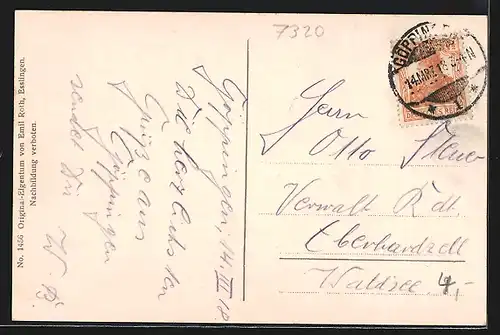 7320
GÖPPINGEN
14.MRZ.18
No. 1456 Original-Eigentum von Emil Roth, Esslingen.
Nachbildung verboten.
Göppingen, 14 III 18
Die herzlichsten
Grüße aus
Göppingen
sendet Dir
W. B.
Herrn
Otto
Verwalt. Kdt.
Eberhardzell
Waldsee
4,-